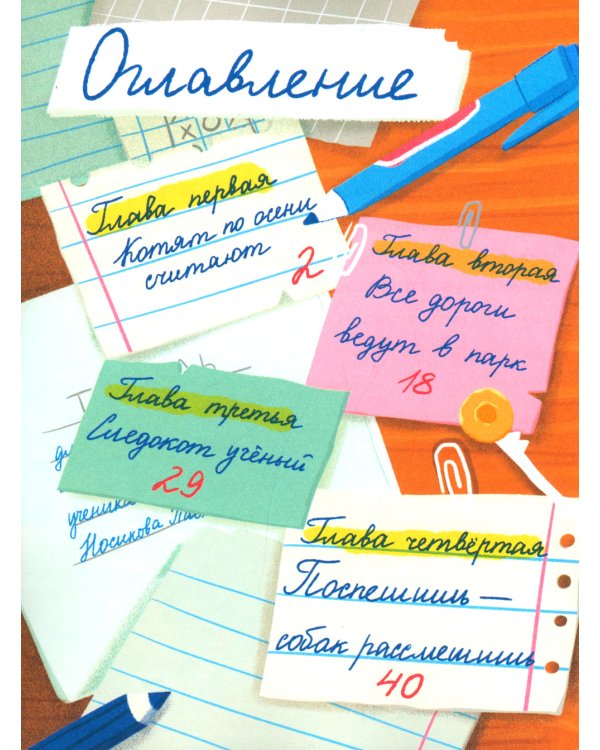 Оглавление
Глава первая
Котят по осени
считают
2
Глава вторая
Все дороги
ведут в парк
18
Глава третья
Следокот учёный
29
ученика
Носикова
Глава четвёртая
Поспешишь —
собак рассмешишь
40